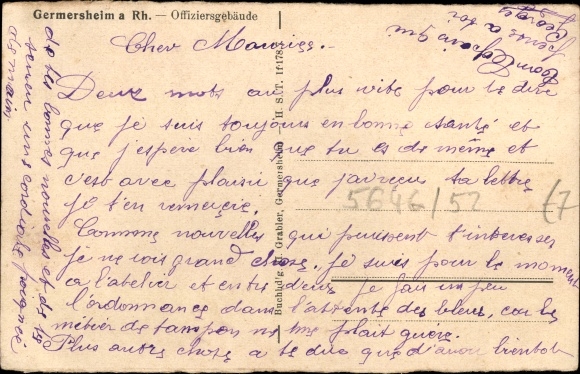 Germersheim a Rh. — Offiziersgebäude
Cher Maurice.
Deux mots au plus vite pour te dire
que je suis toujours en bonne santé et
que j'espere bien que tu es de même et
c'est avec plaisir que j'ai recu ta lettre
je t'en remercie.
Comme nouvelles qui puissent t'interesser
je ne vois grand chose. je suis pour le moment
a l'atelier et entre deux je fais un peu
l'ordonnance dans l'attente des bleus, car le
métier de tampon ne me plait guère.
Plus autre chose a te dire que d'avoir bientot
de tes bonnes nouvelles et de te
serrer une cordiale poignée
de main
Ton Copain qui
pense a toi
Georges
Buchhdlg. H. Grabler, Germersheim H. S. T. 1f178
5646/52
(7